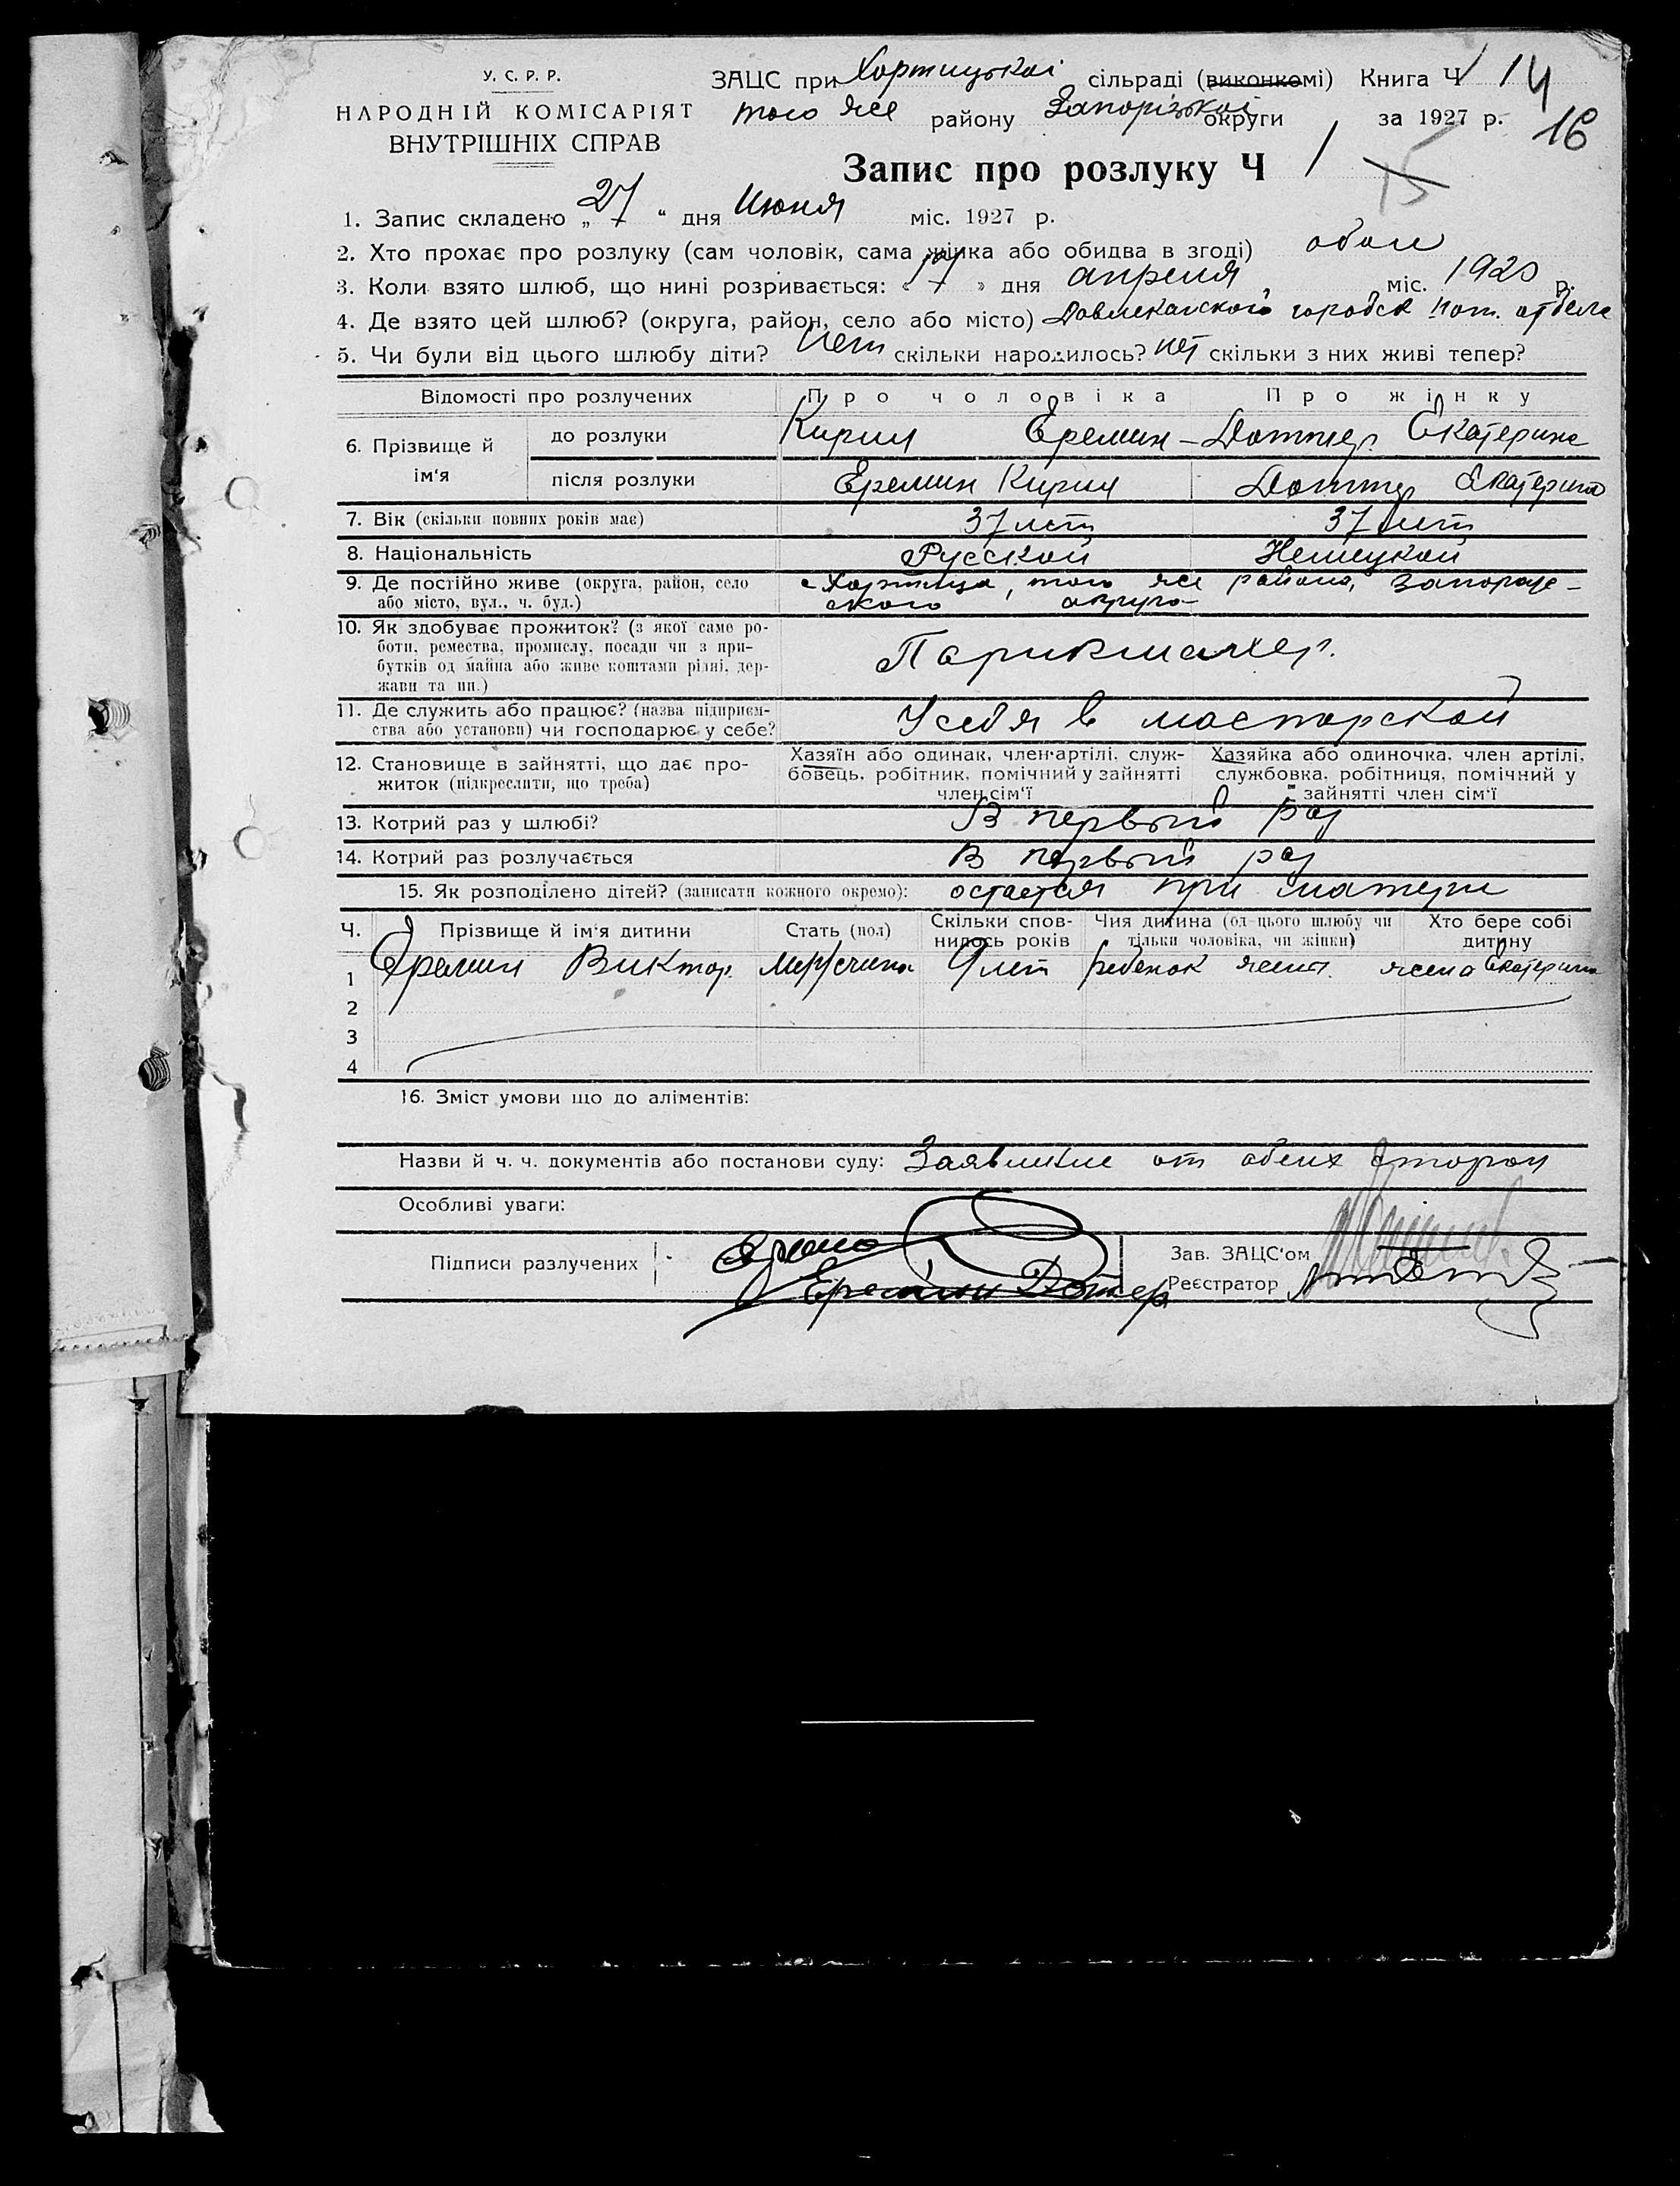 У. С. Р. Р.
НАРОДНІЙ КОМІСАРІЯТ
ВНУТРІШНІХ СПРАВ
ЗАЦС при Хортицькоі сільраді (виконкомі) Книга Ч 14
того же району Запорізькоі округи за 1927 р. 16
Запис про розлуку Ч 1 15
1. Запис складено „27“ дня Июня міс. 1927 р.
2. Хто прохає про розлуку (сам чоловік, сама жінка або обидва в згоді) обои
3. Коли взято шлюб, що нині розривається: «17» дня апреля міс. 1920 р.
4. Де взято цей шлюб? (округа, район, село або місто) городск Нот. отдела
5. Чи були від цього шлюбу діти? Нет скільки народилось? нет скільки з них живі тепер?
Відомості про розлучених Про чоловіка Про жінку
6. Прізвище й ім‘я
до розлуки Кирил Еремин - Доттер Екатерина
після розлуки Еремин Кирил Доттер Екатерина
7. Вік (скільки повних років має) 37 лет 37 лет
8. Національність Русской Немецкой
9. Де постійно живе (округа, район, село
або місто, вул., ч. буд.)
с Хортица, того же района, Запорож-
ского округа
10. Як здобуває прожиток? (з якої саме ро-
боти, ремества, промислу, посади чи з при-
бутків од майна або живе коштами рідні, дер-
жави та ин.)
Парикмахер.
11. Де служить або працює? (назва підприєм-
ства або установи) чи господарює у себе?
У себя в мастерской
12. Становище в зайнятті, що дає про-
житок (підкреслити, що треба)
Хазяїн або одинак, член артілі, служ-
бовець, робітник, помічний у зайнятті
член сім‘ї
Хазяйка або одиночка, член артілі,
службовка, робітниця, помічний у
зайнятті член сім‘ї
13. Котрий раз у шлюбі? В первый раз
14. Котрий раз розлучається В первый раз
15. Як розподілено дітей? (записати кожного окремо): остается при матери
Ч. Прізвище й ім‘я дитини Стать (пол) Скільки спов-
нилось років Чия дитина (од цього шлюбу чи
тільки чоловіка, чи жінки) Хто бере собі
дитину
1 Еремин Виктор. Мужчина 9 лет ребенок жена. жена Екатерина
2
3
4
16. Зміст умови що до аліментів:
Назви й ч. ч. документів або постанови суду: Заявление от обеих сторон
Особливі уваги:
Підписи разлучених
Доттер
Зав. ЗАЦС‘ом
Реєстратор